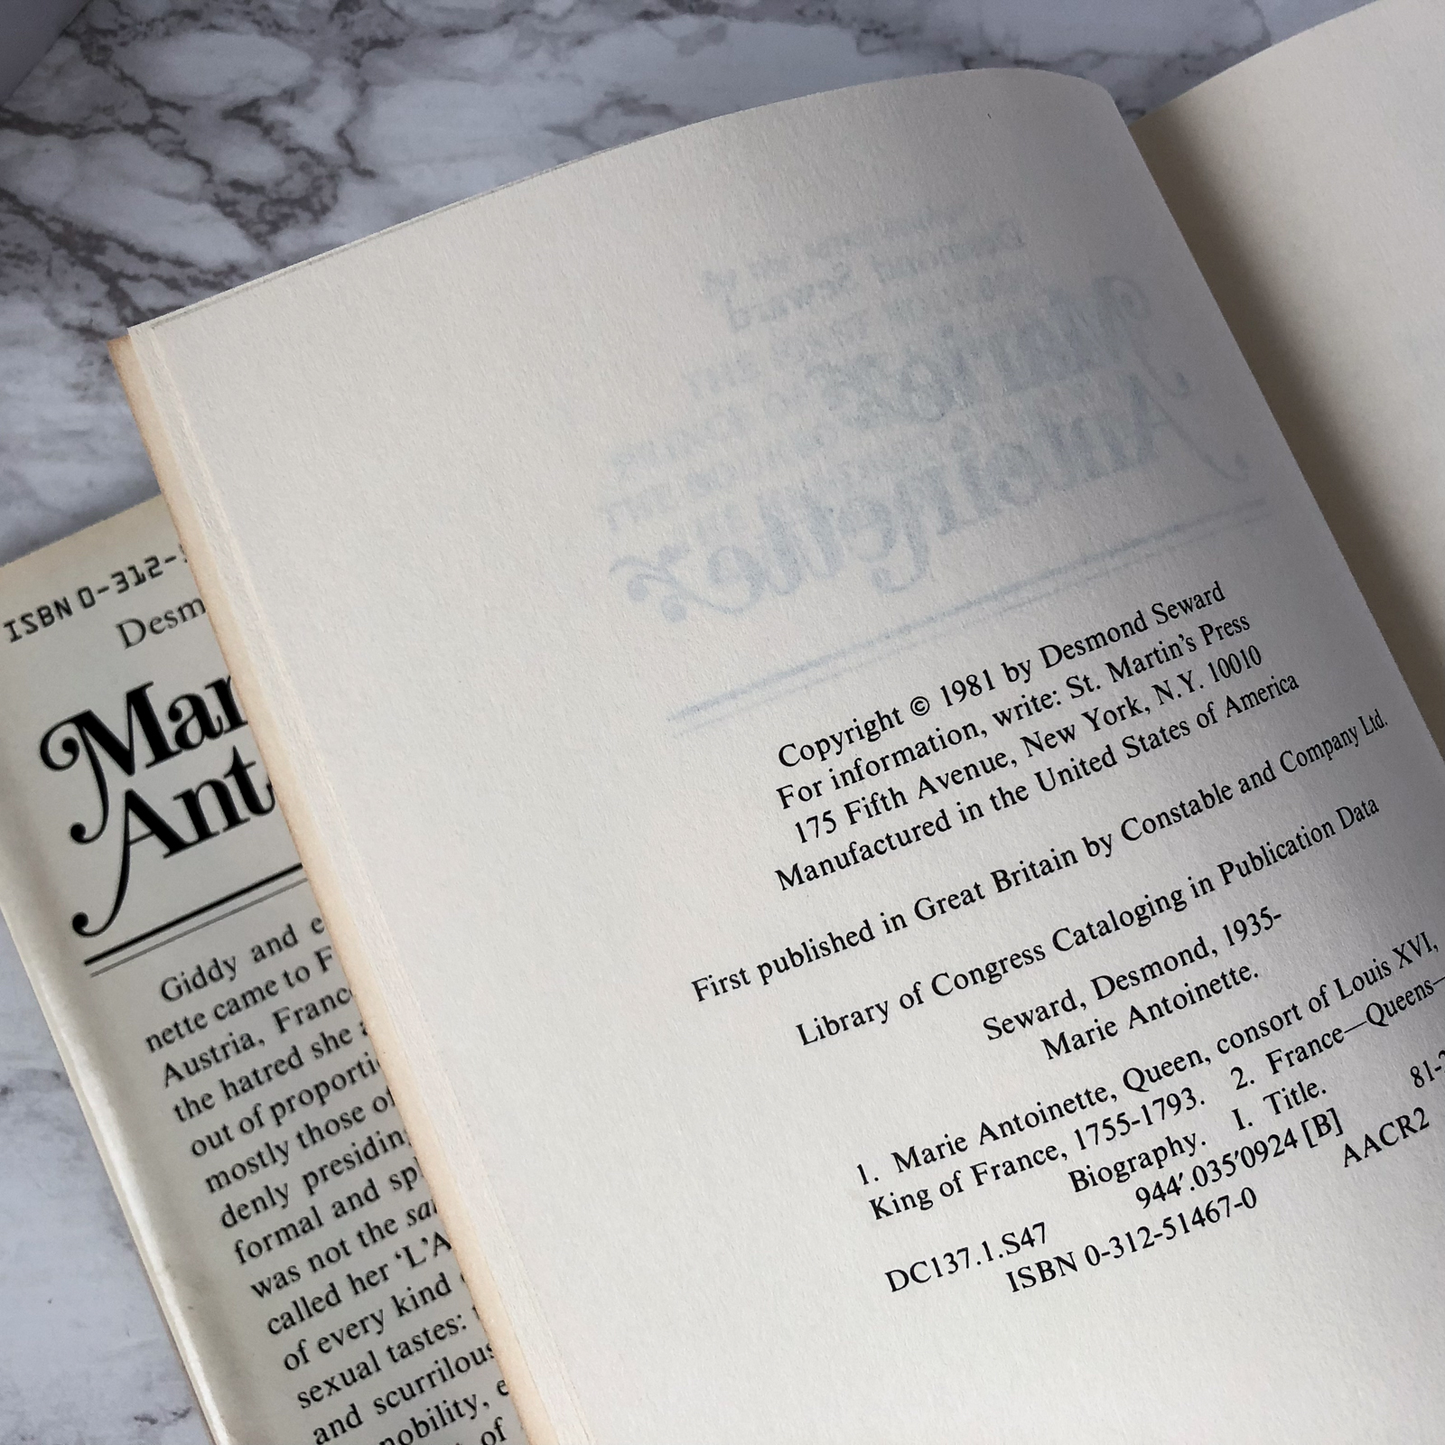 ISBN 0-312-
Desm
Mar
Ant
Giddy and e
nette came to F
Austria, Franc
the hatred she a
out of proporti
mostly those of
denly presiding
formal and sp
was not the sa
called her ‘L’A
of every kind
sexual tastes:
and scurrilous
nobility, e
of
Marie
Antoinette
Copyright © 1981 by Desmond Seward
For information, write: St. Martin’s Press
175 Fifth Avenue, New York, N.Y. 10010
Manufactured in the United States of America
First published in Great Britain by Constable and Company Ltd.
Library of Congress Cataloging in Publication Data
Seward, Desmond, 1935-
Marie Antoinette.
1. Marie Antoinette, Queen, consort of Louis XVI,
King of France, 1755-1793. 2. France—Queens—
Biography. I. Title.
DC137.1.S47 944′.035′0924 [B] 81-
ISBN 0-312-51467-0 AACR2